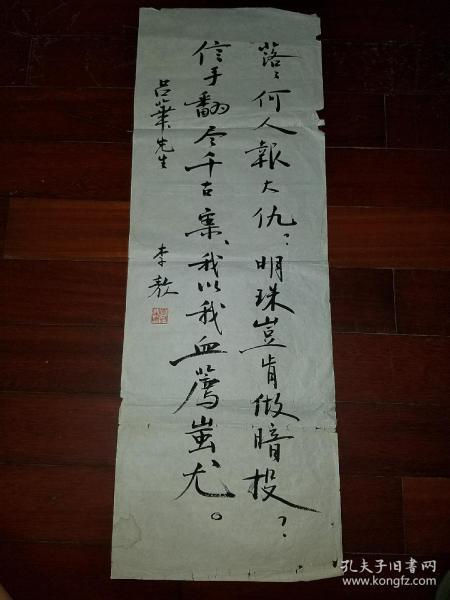 落々何人報大仇？明珠豈肯做暗投？
信手翻尽千古案、我以我血薦蚩尤。
呂華先生
李敖
孔夫子旧书网
www.kongfz.com